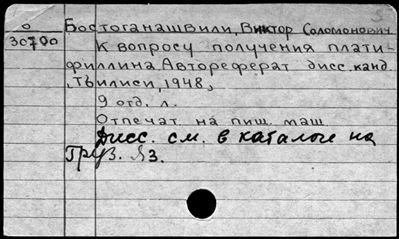 О Бостоганашвили, Виктор Соломонович
30700 К вопросу получения плати-
филлина. Автореферат дисс. канд.
, Тбилиси, 1948,
9 отд. л.
Отпечат. на пиш. маш
Дисс. см. в каталоге на
Груз. яз.